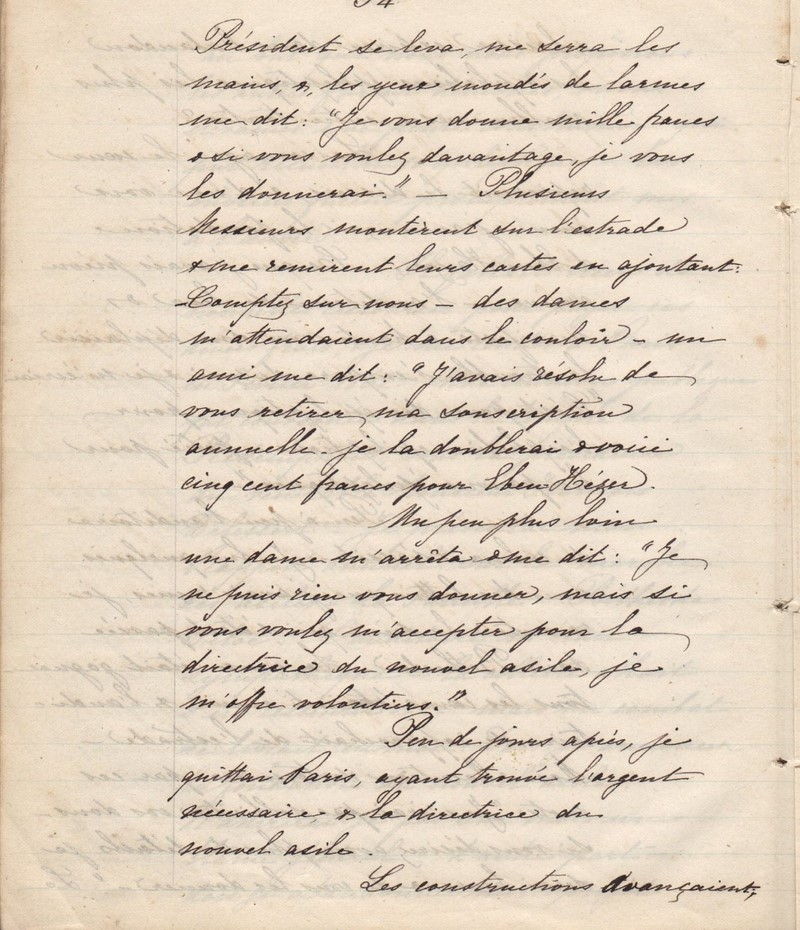 Président se leva, me serra les
mains, &, les yeux inondés de larmes
me dit : "Je vous donne mille francs
& si vous voulez davantage, je vous
les donnerai." — Plusieurs
Messieurs montèrent sur l'estrade
& me remirent leurs cartes en ajoutant :
Comptez sur nous — des dames
m'attendaient dans le couloir — un
ami me dit : "J'avais résolu de
vous retirer ma souscription
annuelle - je la doublerai & voici
cinq cent francs pour Eben Hézer.
Un peu plus loin
une dame m'arrêta & me dit : "Je
ne puis rien vous donner, mais si
vous voulez m'accepter pour la
directrice du nouvel asile, je
m'offre volontiers."
Peu de jours après, je
quittai Paris, ayant trouvé l'argent
nécessaire & la directrice du
nouvel asile.
Les constructions avançaient,